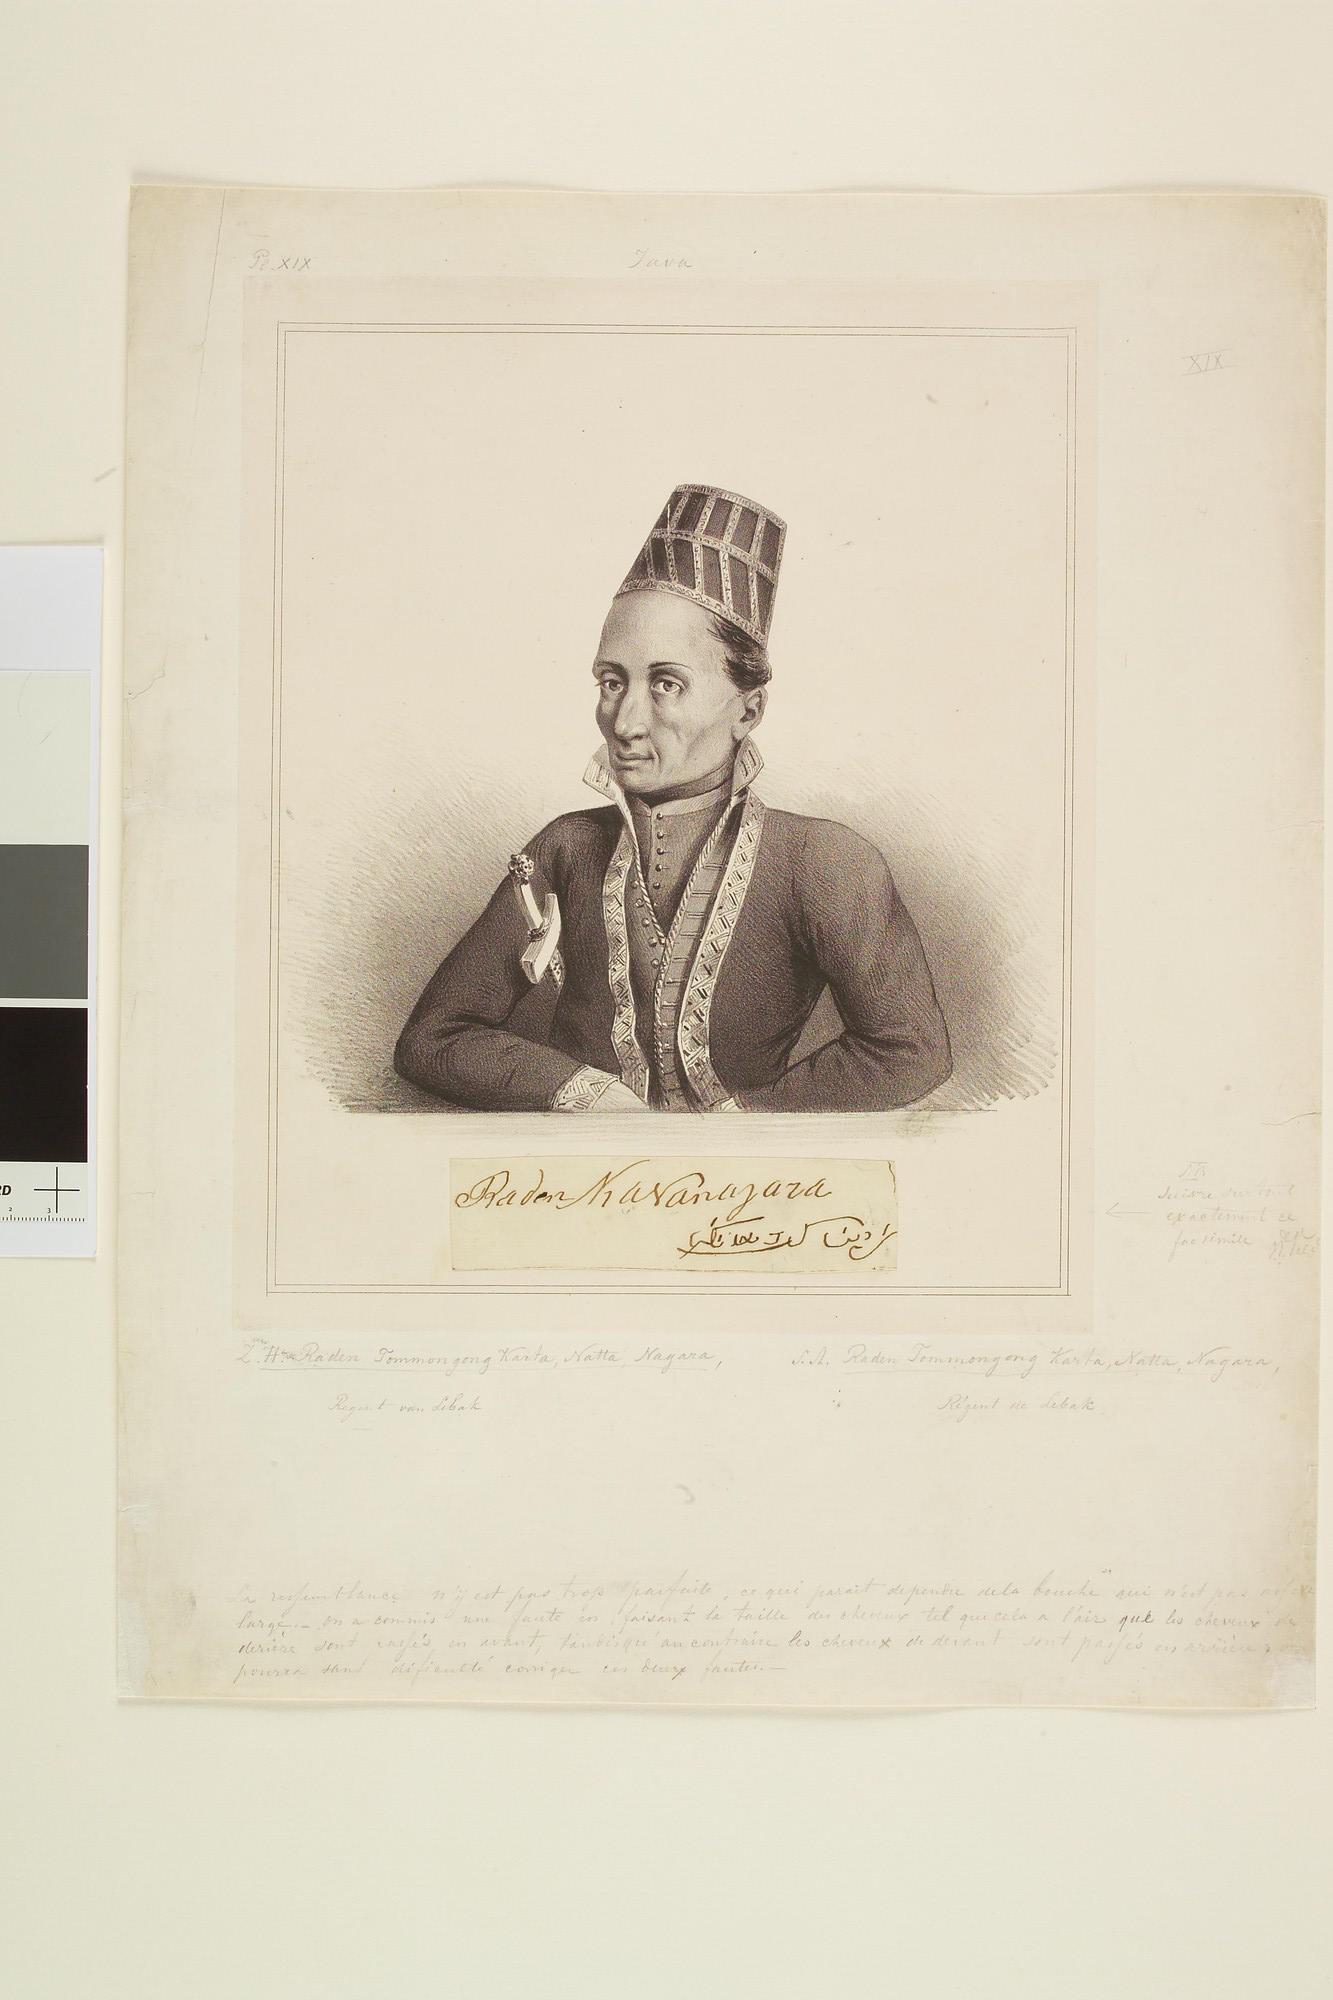 Pl. XIX
Java
XIX
Raden
NB
suivre surtout
exactement ce
facsimile
Raden Tommongong Karta, Natta, Nagara,
Regent van Lebak
S. A. Raden Tommongong Karta, Natta, Nagara,
Régent de Lebak
La ressemblance n'y est pas trop parfaite, ce qui parait dependre de la bouche qui n'est pas
large. – on a commis une faute en faisant la taille des cheveux tel que cela a l'air que les cheveux de
derière sont en avant, tandisqu'au contraire les cheveux de devant sont passés en arrière
pourra sans dificulté corriger ces deux fautes. –